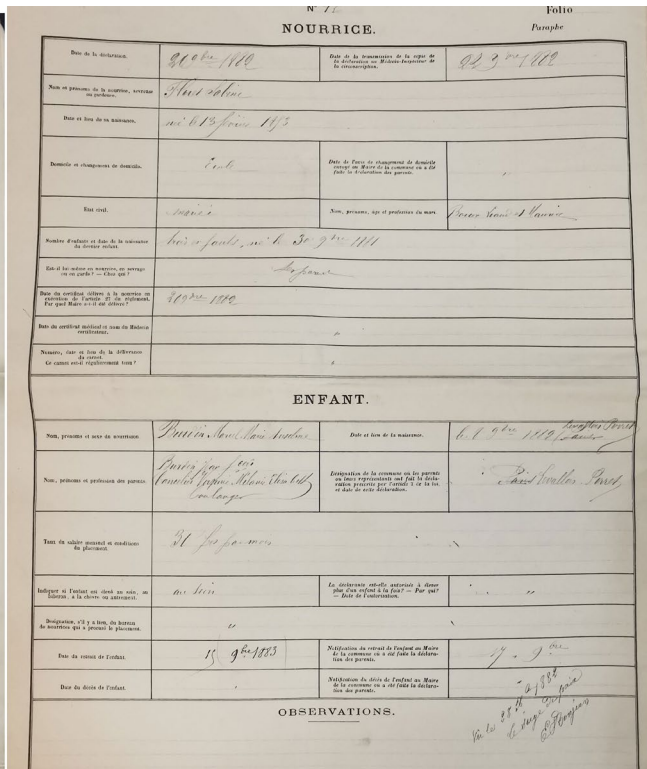 N° 
Folio
NOURRICE.
Paraphe
Date de la déclaration.
20 9bre 1882
Date de la transmission de la copie de
la déclaration au Médecin-Inspecteur de
la circonscription.
22 9bre 1882
Nom et prénoms de la nourrice, sevreuse
ou gardeuse.
Date et lieu de sa naissance.
né le 13 février 1853
Domicile et changement de domicile.
Date de l'avis de changement de domicile
envoyé au Maire de la commune où a été
faite la déclaration des parents.
"
État civil.
mariée
Nom, prénoms, âge et profession du mari.
Nombre d'enfants et date de la naissance
du dernier enfant.
trois enfants, né le 30 9bre 1881
Est-il lui-même en nourrice, en sevrage
ou en garde ? — Chez qui ?
Date du certificat délivré à la nourrice en
exécution de l'article 27 du règlement.
Par quel Maire a-t-il été délivré ?
20 9bre 1882
Date du certificat médical et nom du Médecin
certificateur.
"
Numéro, date et lieu de la délivrance
du carnet.
Ce carnet est-il régulièrement tenu ?
"
ENFANT.
Nom, prénoms et sexe du nourrisson.
Marcel Marie Anselme
Date et lieu de la naissance.
le 9 9bre 1882 Levallois Perret
Nom, prénoms et profession des parents.
Mélanie Elisabeth
boulanger
Désignation de la commune où les parents
ou leurs représentants ont fait la décla-
ration prescrite par l'article 7 de la loi,
et date de cette déclaration.
Paris Levallois-Perret
Taux du salaire mensuel et conditions
du placement.
31 frs par mois
Indiquer si l'enfant est élevé au sein, au
biberon, à la chèvre ou autrement.
au sein
La déclarante est-elle autorisée à élever
plus d'un enfant à la fois ? — Par qui ?
— Date de l'autorisation.
"
Désignation, s'il y a lieu, du bureau
de nourrices qui a procuré le placement.
"
Date du retrait de l'enfant.
15 9bre 1883
Notification du retrait de l'enfant au Maire
de la commune où a été faite la déclara-
tion des parents.
17 9bre
Date du décès de l'enfant.
Notification du décès de l'enfant au Maire
de la commune où a été faite la déclara-
tion des parents.
OBSERVATIONS.
Vu le 28 1882